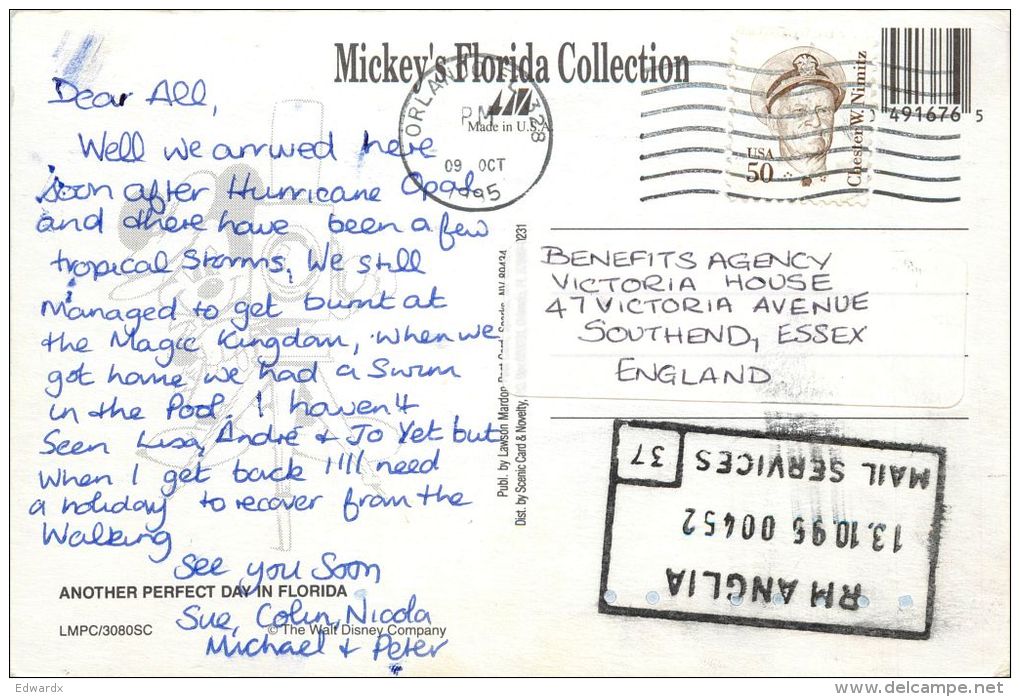 Mickey's Florida Collection
Made in U.S.A.
ORLANDO, FL 328
PM
09 OCT
1995
USA
50
Chester W. Nimitz
491676 5
Dear All,
Well we arrived here
soon after Hurricane Opal
and there have been a few
tropical Storms. We still
Managed to get burnt at
the Magic Kingdom, when we
got home we had a Swim
in the Pool. I haven't
Seen Lisa, André & Jo Yet but
when I get back I'll need
a holiday to recover from the
Walking
See you Soon
Sue, Colin, Nicola
Michael & Peter
ANOTHER PERFECT DAY IN FLORIDA
LMPC/3080SC
© The Walt Disney Company
Publ. by Lawson Mardon
Dist. by Scenic Card & Novelty,
BENEFITS AGENCY
VICTORIA HOUSE
47 VICTORIA AVENUE
SOUTHEND, ESSEX
ENGLAND
RM ANGLIA
13.10.95 00452
MAIL SERVICES 37
Edwardx
www.delcampe.net